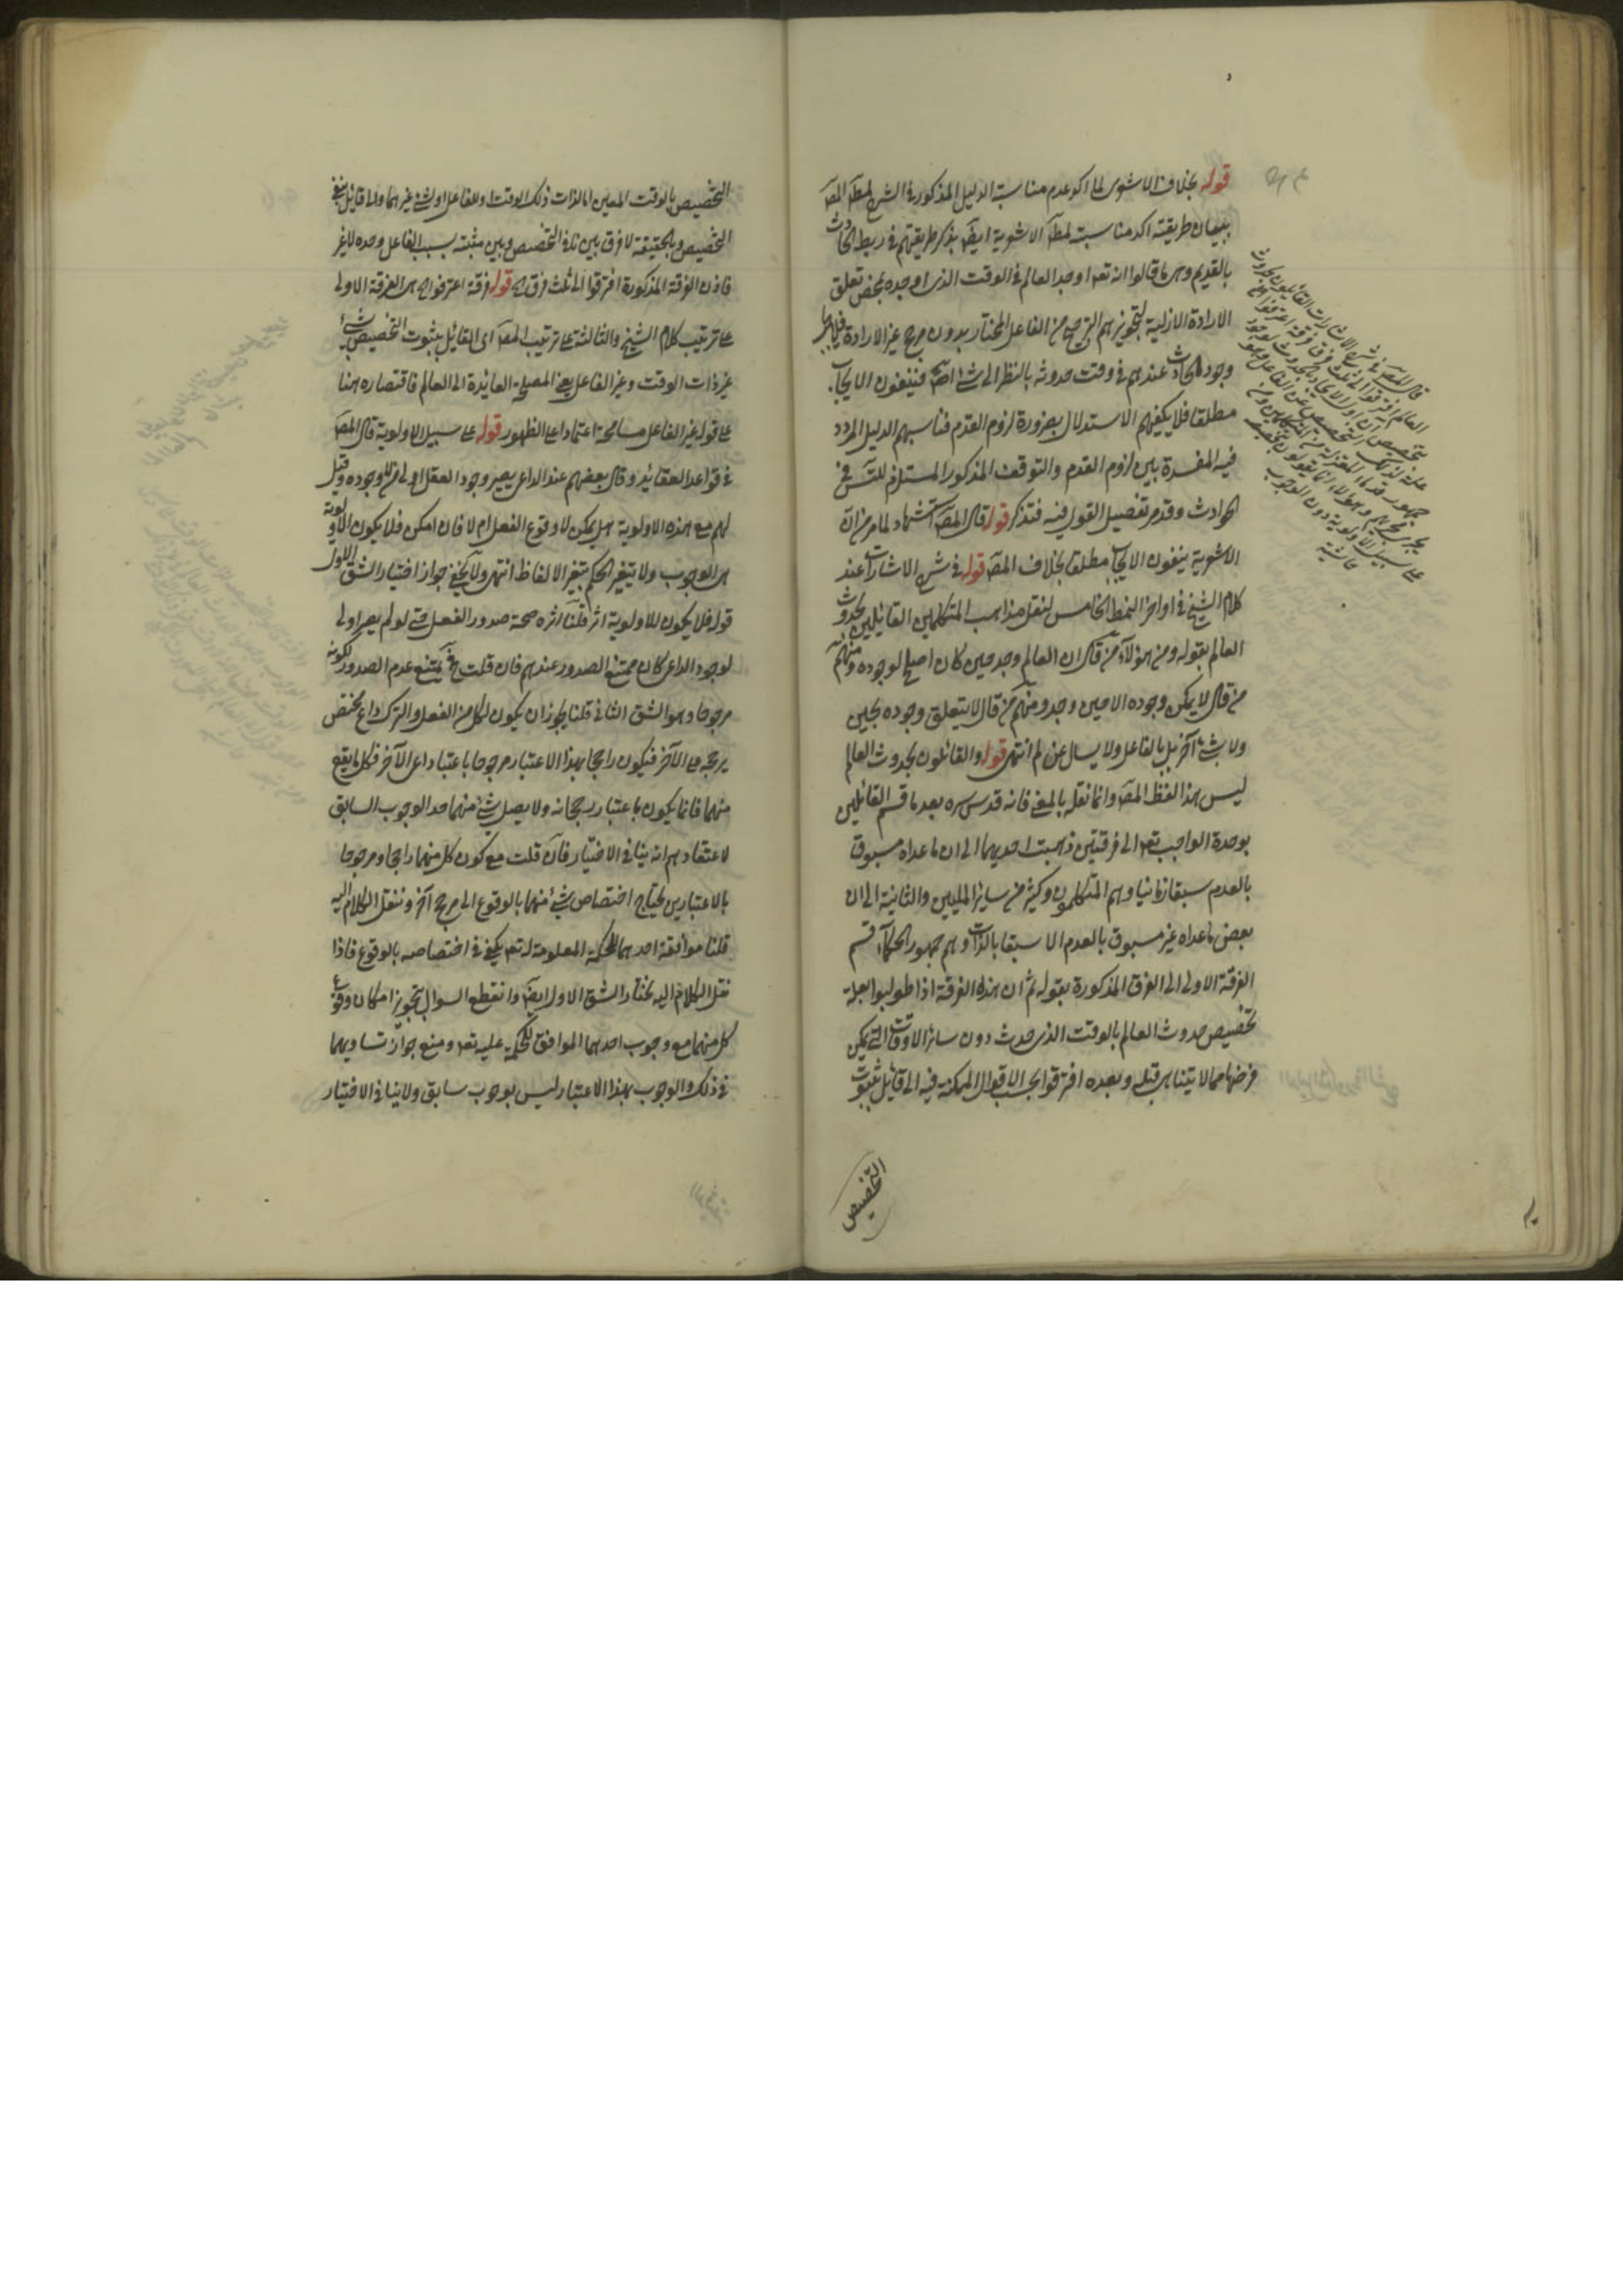 قوله بخلاف الاشعرى لما اكد عدم مناسبة الدليل المذكور فى الشرح لمطلب المصـ
ببيان طريقته اكد مناسبته لمطلب الاشعرية ايضـ بذكر طريقتهم فى ربط الحادث
بالقديم وهى ما قالوا انه تعـ اوجد العالم فى الوقت الذى اوجده بمحض تعلق
الارادة الازلية لتجويزهم الترجيح من الفاعل المختار بدون مرجح غير الارادة
وجود الحادث عندهم فى وقت حدوثه بالنظر الى شئ اصلا فينفون الايجاب
مطلقا فلا يكفيهم الاستدلال بضرورة لزوم القدم فناسبهم الدليل المردد
فيه المفسدة بين لزوم القدم والتوقف المذكور المستلزم للتسـ فى
الحوادث وقد مر تفصيل القول فيه فتذكر قوله قال المصـ استشهاد لما مر من ان
الاشعرية ينفون الايجاب مطلقا بخلاف المصـ قوله فى شرح الاشارات عند
كلام الشيخ فى اواخر النمط الخامس لنقل مذاهب المتكلمين القائلين بحدوث
العالم بقوله ومن هؤلاء من قال ان العالم وجد حين كان اصلح لوجوده ومنهم
من قال لا يمكن وجوده الا حين وجد ومنهم من قال لا يتعلق وجوده بحين
ولا بشئ آخر بل بالفاعل ولا يسال عن لم انتهى قوله والقائلون بحدوث العالم
ليس هذا لفظ المصـ وانما نقله بالمعنى فانه قدس سره بعد ما قسم القائلين
بوحدة الواجب تعـ الى فرقتين ذهبت احديهما الى ان ما عداه مسبوق
بالعدم سبقا زمانيا وهم المتكلمون وكثير من سائر المليين والثانية الى ان
بعض ما عداه غير مسبوق بالعدم الا سبقا بالذات وهم جمهور الحكماء قسم
الفرقة الاولى الى الفرق المذكورة بقوله ثم ان هذه الفرقة اذا طولبوا بعلة
تخصيص حدوث العالم بالوقت الذى حدث دون سائر الاوقات التى يمكن
فرضها مما لا يتناهى قبله وبعده افترقوا بحسب الاقوال الممكنة فيه الى قائل بثبوت
التخصيص
قال المصـ فى شرح الاشارات القائلون بحدوث
العالم افترقوا الى ثلث فرق فرقة اعترفوا
على سبيل الاولوية دون الوجوب
حاشية
التخصيص بالوقت المعين اما لذات ذلك الوقت او للفاعل او لشئ غيرهما والى قائل بنفى
التخصيص وبالحقيقة لا فرق بين نافى التخصيص وبين مثبته بسبب الفاعل وحده لا غير
فاذن الفرقة المذكورة افترقوا الى ثلث فرق قوله فرقة اعترفوا هى الفرقة الاولى
على ترتيب كلام الشيخ والثالثة على ترتيب المصـ اى القائل بثبوت التخصيص بشئ
غير ذات الوقت وغير الفاعل يعنى المصلحة العائدة الى العالم فاقتصاره هنا
على قوله غير الفاعل مسامحة اعتمادا على الظهور قوله على سبيل الاولوية قال المصـ
فى قواعد العقائد وقال بعضهم عند الداعى يصير وجود الفعل اولى من لا وجوده وقيل
لهم مع هذه الاولوية هل يمكن لا وقوع الفعل ام لا فان امكن فلا يكون الاولوية
هى الوجوب ولا يتغير الحكم بتغير الالفاظ انتهى ولا يخفى جواز اختيار الشق الاول
قوله فلا يكون للاولوية اثر قلنا اثره صحة صدور الفعل حتى لو لم يصر اولى
لوجود الداعى كان ممتنع الصدور عندهم فان قلت فـ يمتنع عدم الصدور لكونه
مرجوحا وهو الشق الثانى قلنا يجوز ان يكون لكل من الفعل والترك داع مختص
يرجحه على الآخر فيكون راجحا بهذا الاعتبار مرجوحا باعتبار داعى الآخر فكل ما يقع
منهما فانما يكون باعتبار رجحانه ولا يصل شئ منهما حد الوجوب السابق
لاعتقادهم انه ينافى الاختيار فان قلت مع كون كل منهما راجحا ومرجوحا
بالاعتبارين يحتاج اختصاص شئ منهما بالوقوع الى مرجح آخر وننقل الكلام اليه
قلنا موافقة احدهما للحكمة المعلومة له تعـ يكفى فى اختصاصه بالوقوع فاذا
نقل الكلام اليه نختار الشق الاول ايضـ وانقطع السوال بتجويز امكان وقوع
كل منهما مع وجوب احدهما الموافق للحكمة عليه تعـ ومنع جواز تساويهما
فى ذلك والوجوب بهذا الاعتبار ليس بوجوب سابق ولا ينافى الاختيار